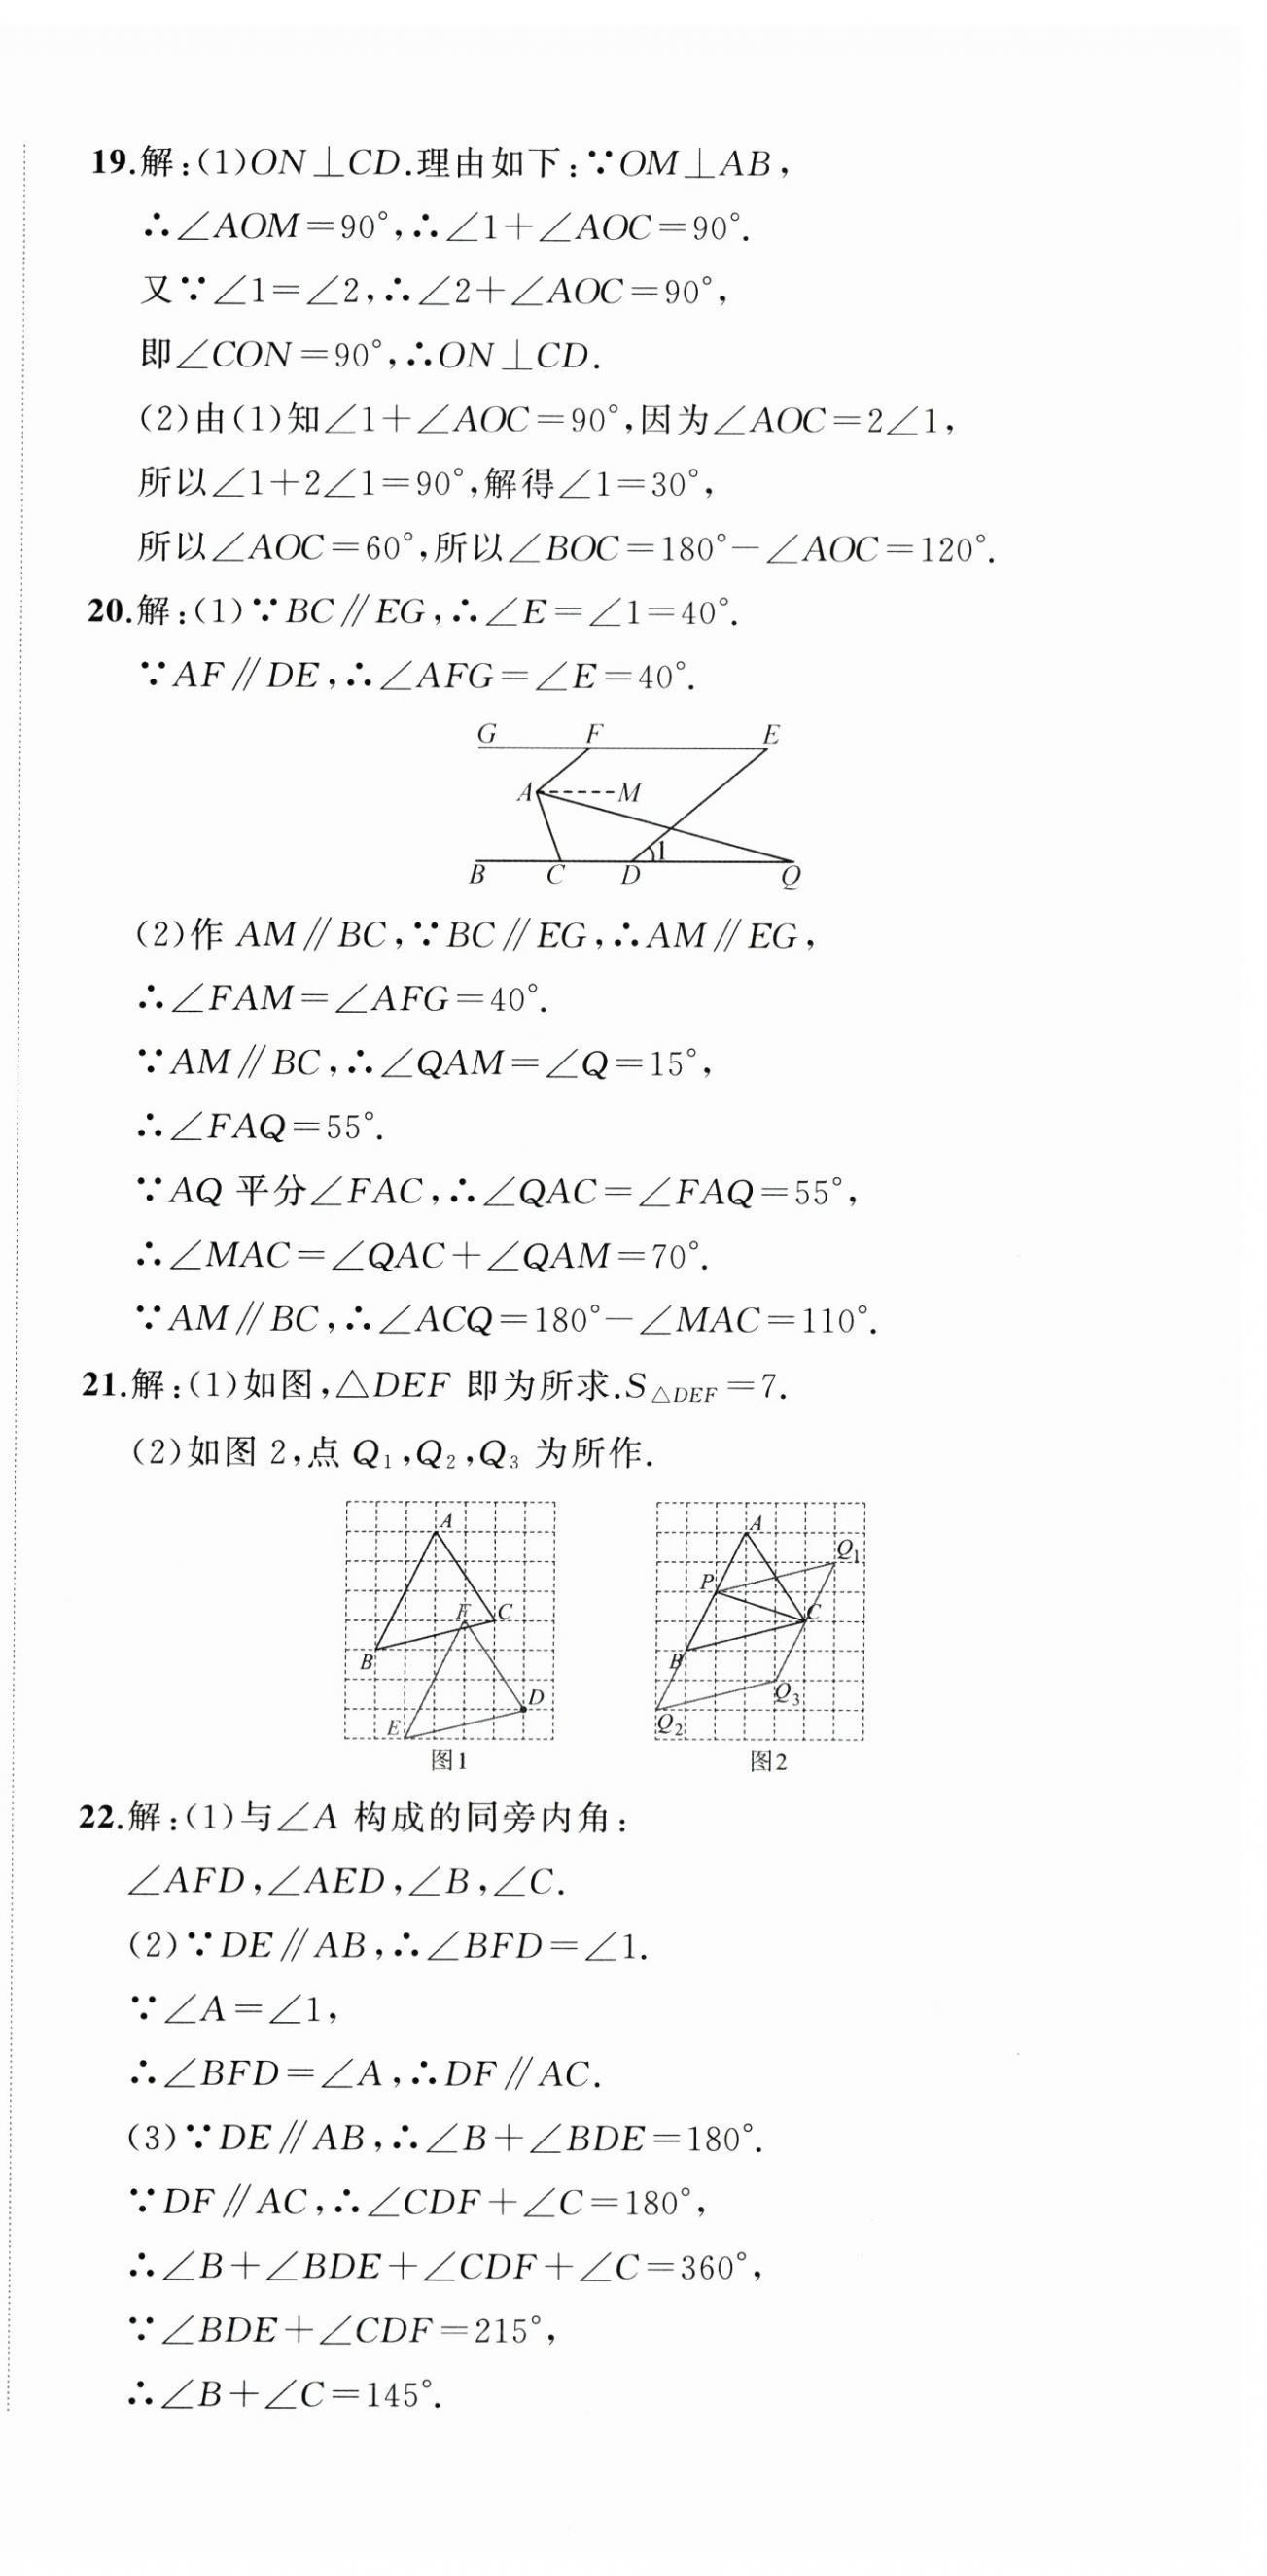 19.解:(1)ON⊥CD.理由如下:∵OM⊥AB,
∴∠AOM=90°,∴∠1+∠AOC=90°.
又∵∠1=∠2,∴∠2+∠AOC=90°,
即∠CON=90°,∴ON⊥CD.
(2)由(1)知∠1+∠AOC=90°,因为∠AOC=2∠1,
所以∠1+2∠1=90°,解得∠1=30°,
所以∠AOC=60°,所以∠BOC=180°-∠AOC=120°.
20.解:(1)∵BC∥EG,∴∠E=∠1=40°.
∵AF∥DE,∴∠AFG=∠E=40°.
G F E
A M
1
B C D Q
(2)作 AM∥BC,∵BC∥EG,∴AM∥EG,
∴∠FAM=∠AFG=40°.
∵AM∥BC,∴∠QAM=∠Q=15°,
∴∠FAQ=55°.
∵AQ 平分∠FAC,∴∠QAC=∠FAQ=55°,
∴∠MAC=∠QAC+∠QAM=70°.
∵AM∥BC,∴∠ACQ=180°-∠MAC=110°.
21.解:(1)如图,△DEF 即为所求.S△DEF=7.
(2)如图 2,点 Q₁,Q₂,Q₃ 为所作.
A
F C
B
D
E
图1
A
Q₁
P
C
B
Q₃
Q₂
图2
22.解:(1)与∠A 构成的同旁内角:
∠AFD,∠AED,∠B,∠C.
(2)∵DE∥AB,∴∠BFD=∠1.
∵∠A=∠1,
∴∠BFD=∠A,∴DF∥AC.
(3)∵DE∥AB,∴∠B+∠BDE=180°.
∵DF∥AC,∴∠CDF+∠C=180°,
∴∠B+∠BDE+∠CDF+∠C=360°,
∵∠BDE+∠CDF=215°,
∴∠B+∠C=145°.